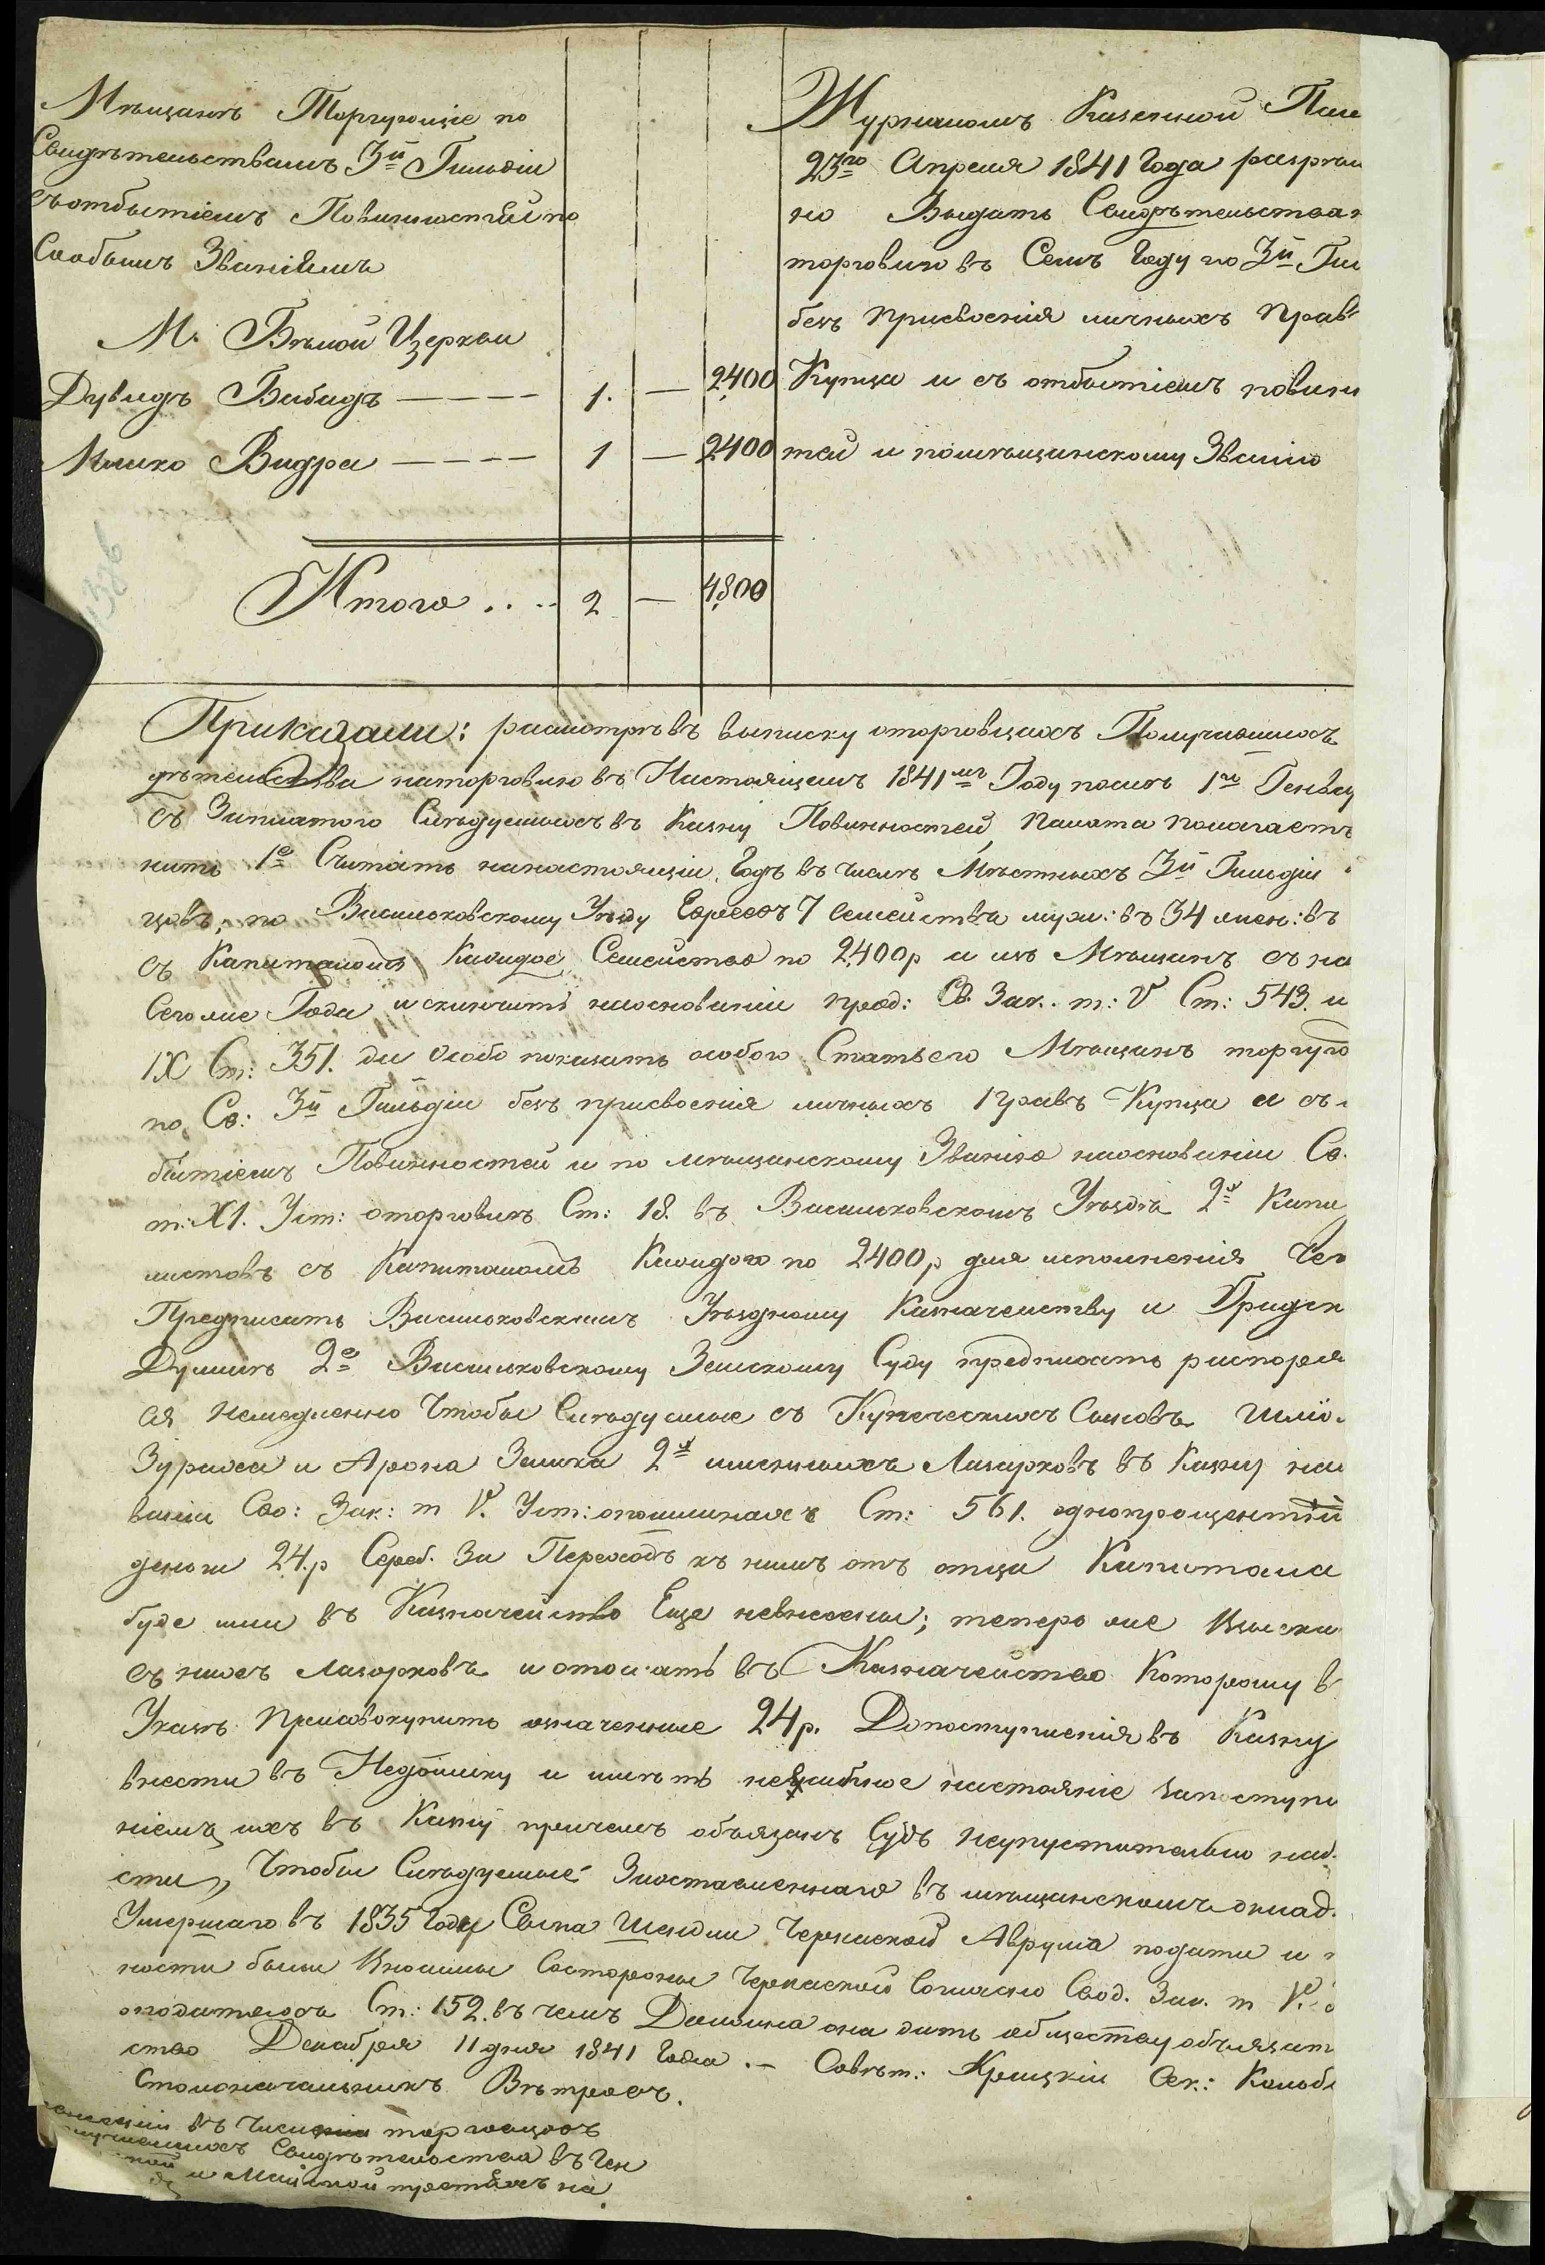 Мѣщанъ Торгующіе по
Свидѣтельствамъ 3й Гильдіи
съотбытіемъ Повинностей по
Своѣмъ Званіемъ
М. Бѣлой Церкви
Дувидъ Бибидъ ---- 1. — 2400
Мошко Видра ---- 1 — 2400
Итого .... 2 — 4,800
Журналомъ Казенной Пала
23го Апреля 1841 Года разрѣш
но Выдать Свидѣтельства
торговлю въ Семъ Году по 3й Гил
безъ присвоенія личныхъ Правъ
Купца и съ отбытіемъ повинн
тей и помѣщанскому Званію
Приказали: разсмотрѣвъ выписку оторговцахъ Получившихъ
дѣтельства наторговлю въ Настоящемъ 1841мъ Году послѣ 1го Генвар
съ Запматого Слѣдуемыхъ въ Казну Повинностей, Палата полагаетъ
нить 1е Считать нанастоящій Годъ въ числѣ Мѣстныхъ 3й Гильдіи
цовъ, по Васильковскому Уѣзду Евреевъ 7 семействъ муж: въ 34 жен: въ
съ Капиталомъ Каждое Семейство по 2400р и изъ Мѣщанъ съ на
Сего же Года исключить наоснованіи прод: Св. Зак. т: V Ст: 543. и
IX Ст: 351. да Особо показать особою Статьею Мѣщанъ торгую
по Св: 3й Гильдіи безъ присвоенія личныхъ правъ Купца а съ
бытіемъ Повинностей и по мѣщанскому Званію наоснованіи Св.
т: XI. Уст: оторговлѣ Ст: 18. въ Васильковскомъ Уѣздѣ 2х Капи
листовъ съ Капиталомъ Каждого по 2400р для исполненія Чего
Предписать Васильковскимъ Уѣздному Казначейству и Градск
Думѣ 2е Васильковскому Земскому Суду предписать распоряд
ся немедленно Чтобы Слѣдуемые съ Купеческихъ Сыновъ Шлио
и Арона Зелика 2х именныхъ Лазарховъ въ Казну нао
ваніи Сво: Зак: т V. Уст: опошлинахъ Ст: 561. однопроцентній
деньги 24.р Сереб. За Переходъ къ нимъ отъ отца Капитала
буде ими въ Казначейство Еще невнесены; теперь же Взыскан
съ нихъ Лазарховъ и отосланъ въ Казначейство Которому в
Указѣ Присовокупить означенные 24р. Допоступленія въ Казну
внести въ Недоимку и имѣть настояніе запоступл
ніемъ ихъ въ Казну причемъ обязанъ Судъ неупустительно наб
сти, Чтобы Слѣдуемые Заоставленнаго въ мѣщанскомъ оклад
Умершаго въ 1835 Году Сына Шендли Черкаской Аврума подати и
ности были Вносимы Состороны Черкаской Согласно Свод. Зак. т V. о
оподатяхъ Ст: 152. въ чемъ Должна она дать обществу обязат
ство Декабря 11 дня 1841 Года. — Совѣт: Крицкій Сек: Колоб
Столоначальникъ Вѣтровъ.
въ Числѣ торговцовъ
Свидѣтельства въ Ген
и Майской третяхъ на